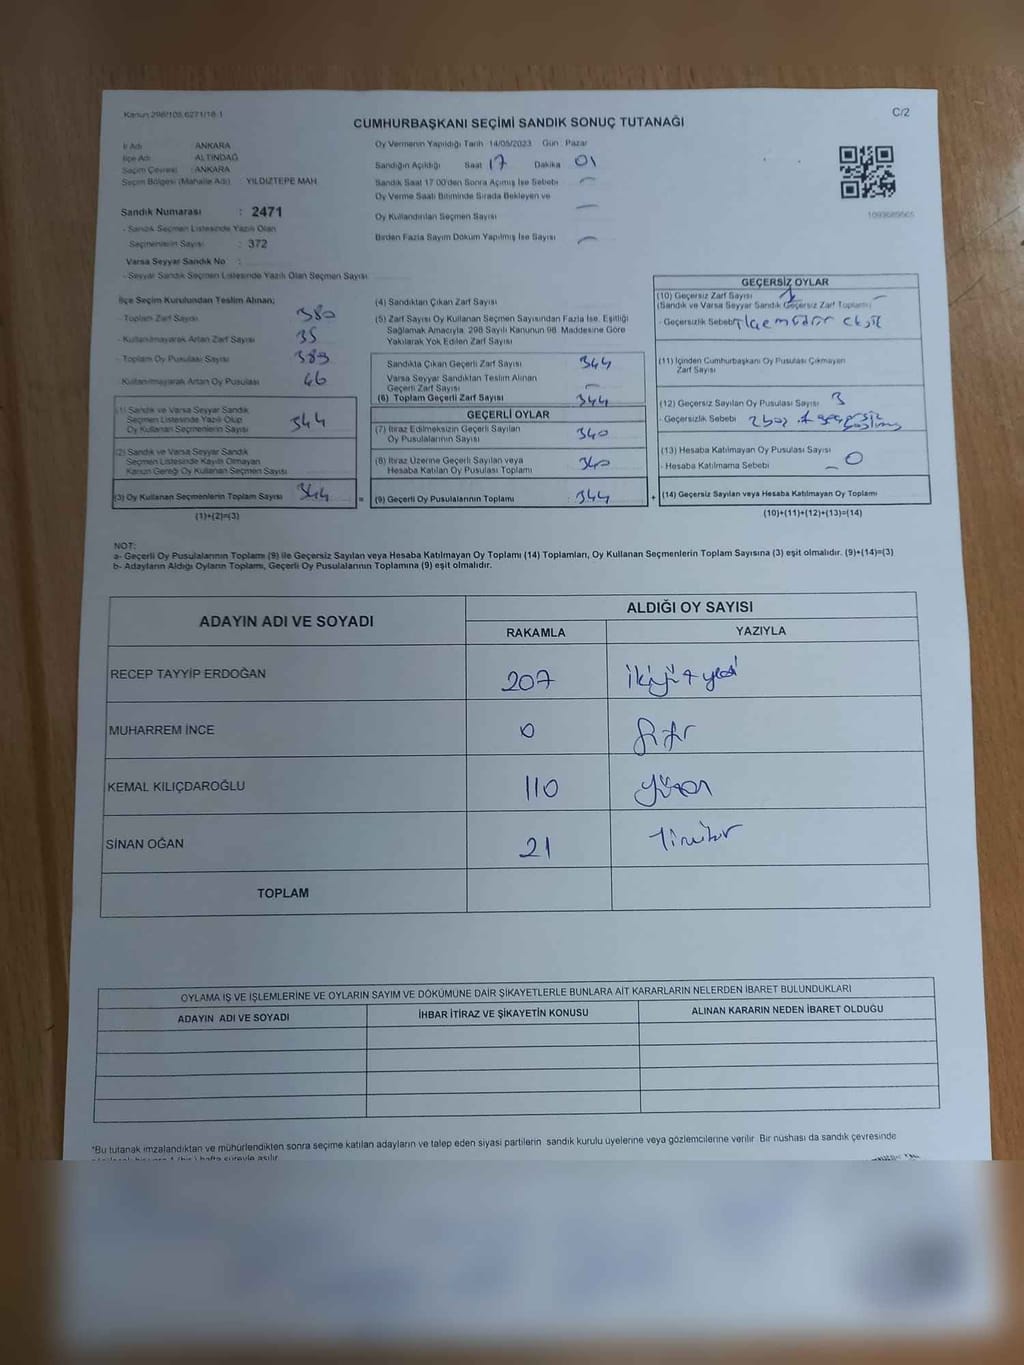 Kanun 298/105.6271/18.1
C/2
CUMHURBAŞKANI SEÇİMİ SANDIK SONUÇ TUTANAĞI
İl Adı ANKARA
İlçe Adı ALTINDAĞ
Seçim Çevresi : ANKARA
Seçim Bölgesi (Mahalle Adı) : YILDIZTEPE MAH
Sandık Numarası : 2471
- Sandık Seçmen Listesinde Yazılı Olan
Seçmenlerin Sayısı : 372
Varsa Seyyar Sandık No :
- Seyyar Sandık Seçmen Listesinde Yazılı Olan Seçmen Sayısı
Oy Vermenin Yapıldığı Tarih 14/05/2023 Gün Pazar
Sandığın Açıldığı Saat 17 Dakika 01
Sandık Saat 17 00'den Sonra Açımış İse Sebebi
Oy Verme Saati Bitiminde Sırada Bekleyen ve
Oy Kullandırılan Seçmen Sayısı
Birden Fazla Sayım Döküm Yapılmış İse Sayısı
İlçe Seçim Kurulundan Teslim Alınan;
- Toplam Zarf Sayısı 380
- Kullanılmayarak Artan Zarf Sayısı 35
- Toplam Oy Pusulası Sayısı 389
- Kullanılmayarak Artan Oy Pusulası 46
(1) Sandık ve Varsa Seyyar Sandık
Seçmen Listesinde Yazılı Olup
Oy Kullanan Seçmenlerin Sayısı 344
(2) Sandık ve Varsa Seyyar Sandık
Seçmen Listesinde Kayıtlı Olmayan
Kanun Gereği Oy Kullanan Seçmen Sayısı
(3) Oy Kullanan Seçmenlerin Toplam Sayısı 344 =
(1)+(2)=(3)
(4) Sandıktan Çıkan Zarf Sayısı
(5) Zarf Sayısı Oy Kullanan Seçmen Sayısından Fazla İse, Eşitliği
Sağlamak Amacıyla, 298 Sayılı Kanunun 98. Maddesine Göre
Yakılarak Yok Edilen Zarf Sayısı
Sandıkta Çıkan Geçerli Zarf Sayısı 344
Varsa Seyyar Sandıktan Teslim Alınan
Geçerli Zarf Sayısı
(6) Toplam Geçerli Zarf Sayısı 344
GEÇERLİ OYLAR
(7) İtiraz Edilmeksizin Geçerli Sayılan
Oy Pusulalarının Sayısı 340
(8) İtiraz Üzerine Geçerli Sayılan veya
Hesaba Katılan Oy Pusulası Toplamı 340
(9) Geçerli Oy Pusulalarının Toplamı : 344 +
GEÇERSİZ OYLAR
(10) Geçersiz Zarf Sayısı 1
(Sandık ve Varsa Seyyar Sandık Geçersiz Zarf Toplamı)
- Geçersizlik Sebebi
(11) İçinden Cumhurbaşkanı Oy Pusulası Çıkmayan
Zarf Sayısı
(12) Geçersiz Sayılan Oy Pusulası Sayısı 3
- Geçersizlik Sebebi 2 boş 1 geçersiz
(13) Hesaba Katılmayan Oy Pusulası Sayısı
- Hesaba Katılmama Sebebi 0
(14) Geçersiz Sayılan veya Hesaba Katılmayan Oy Toplamı
(10)+(11)+(12)+(13)=(14)
NOT:
a- Geçerli Oy Pusulalarının Toplamı (9) ile Geçersiz Sayılan veya Hesaba Katılmayan Oy Toplamı (14) Toplamları, Oy Kullanan Seçmenlerin Toplam Sayısına (3) eşit olmalıdır. (9)+(14)=(3)
b- Adayların Aldığı Oyların Toplamı, Geçerli Oy Pusulalarının Toplamına (9) eşit olmalıdır.
ADAYIN ADI VE SOYADI
ALDIĞI OY SAYISI
RAKAMLA YAZIYLA
RECEP TAYYİP ERDOĞAN 207 ikiyüz yedi
MUHARREM İNCE 0 Sıfır
KEMAL KILIÇDAROĞLU 110 yüzon
SİNAN OĞAN 21 Yirmibir
TOPLAM
OYLAMA İŞ VE İŞLEMLERİNE VE OYLARIN SAYIM VE DÖKÜMÜNE DAİR ŞİKAYETLERLE BUNLARA AİT KARARLARIN NELERDEN İBARET BULUNDUKLARI
ADAYIN ADI VE SOYADI İHBAR İTİRAZ VE ŞİKAYETİN KONUSU ALINAN KARARIN NEDEN İBARET OLDUĞU
*Bu tutanak imzalandıktan ve mühürlendikten sonra seçime katılan adayların ve talep eden siyasi partilerin sandık kurulu üyelerine veya gözlemcilerine verilir. Bir nüshası da sandık çevresinde